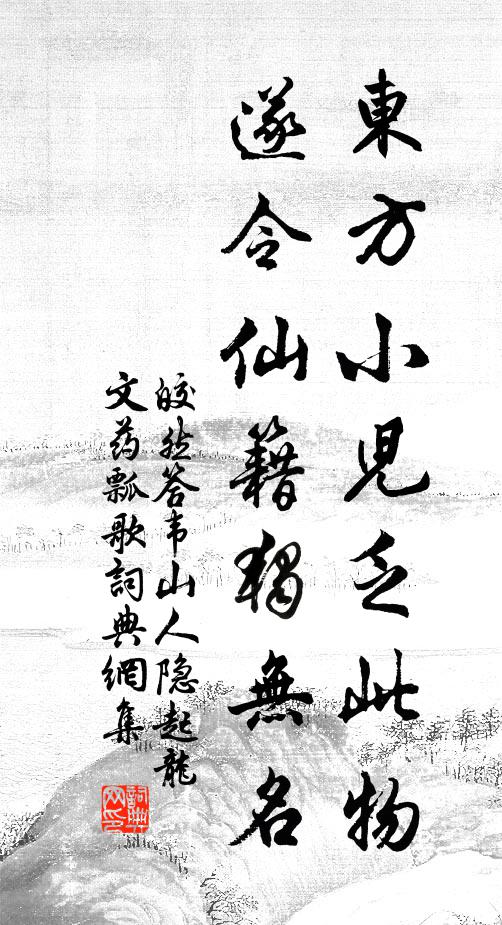 東方小兒乏此物
遂令仙籍獨無名
皎然答韦山人隐起龍
文药瓢歌詞典網集